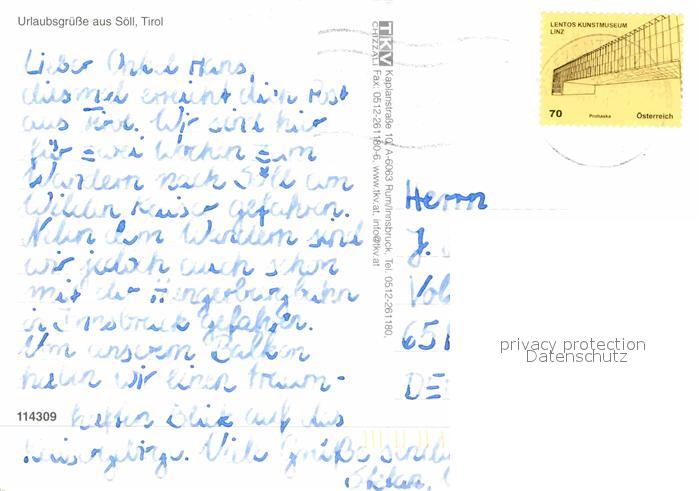 Urlaubsgrüße aus Söll, Tirol
Lieber Onkel Hans,
diesmal erreicht dich Post
aus Tirol. Wir sind hier
für zwei Wochen zum
Wandern nach Söll am
Wilden Kaiser gefahren.
Neben dem Wandern sind
wir jedoch auch schon
mit der Hungerburgbahn
in Innsbruck gefahren.
Von unserem Balkon
haben wir einen traum-
haften Blick auf das
Kaisergebirge. Viele Grüße
Stefan,
114309
TKV
CHIZZALI
Kaplanstraße 10, A-6063 Rum/Innsbruck, Tel. 0512-261180,
Fax: 0512-261180-6, www.tkv.at, info@tkv.at
LENTOS KUNSTMUSEUM
LINZ
70
Prohaska
Österreich
Herrn
J.
651
DE
privacy protection
Datenschutz